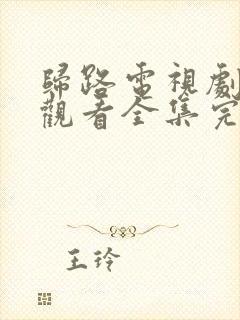 歸路電視劇
觀看全集完
王玲